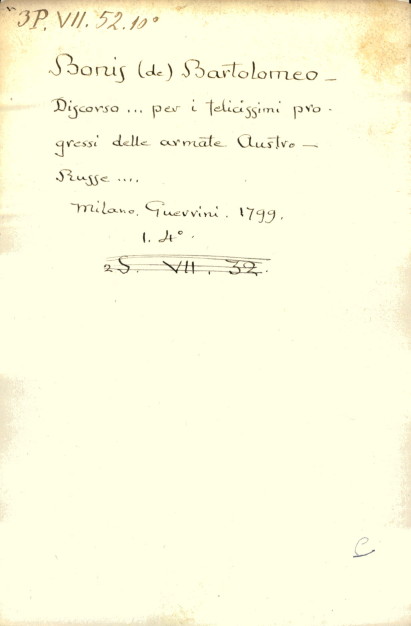 3P. VII. 52. 10°
Bonis (de) Bartolomeo —
Discorso ... per i felicissimi pro-
gressi delle armate Austro —
Russe ....
Milano. Guerrini. 1799.
1. 4°.
2 S. VII. 32.
C